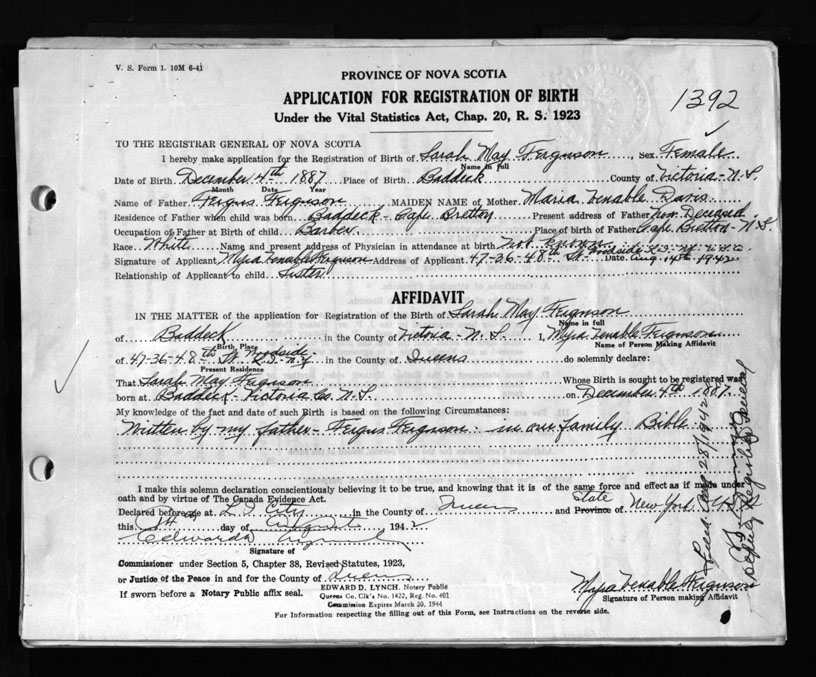 V. S. Form 1. 10M 6-41
PROVINCE OF NOVA SCOTIA
APPLICATION FOR REGISTRATION OF BIRTH
1392
Under the Vital Statistics Act, Chap. 20, R. S. 1923
TO THE REGISTRAR GENERAL OF NOVA SCOTIA
I hereby make application for the Registration of Birth of Sarah May Ferguson, Sex Female
Name in full
Date of Birth December 4th 1887 Place of Birth Baddeck County of Victoria - N.S.
Month Date Year
Name of Father Fergus Ferguson MAIDEN NAME of Mother Maria Venable Davis
Residence of Father when child was born Baddeck - Cape Bretton Present address of Father Now Deceased
Occupation of Father at Birth of child Barber Place of birth of Father Cape Bretton - N.S.
Race White Name and present address of Physician in attendance at birth
Signature of Applicant Myra Venable Ferguson Address of Applicant 47-36-48th St. Woodside L.I. N.Y. Date Aug. 14th 1942
Relationship of Applicant to child Sister
AFFIDAVIT
IN THE MATTER of the application for Registration of the Birth of Sarah May Ferguson
Name in full
of Baddeck in the County of Victoria - N.S. I, Myra Venable Ferguson
Birth Place Name of Person Making Affidavit
of 47-36-48th St. Woodside L.I. - N.Y. in the County of Queens do solemnly declare:
Present Residence
That Sarah May Ferguson Whose Birth is sought to be registered was
born at Baddeck - Victoria Co. N.S. on December 4th 1887
My knowledge of the fact and date of such Birth is based on the following Circumstances:
Written by my father - Fergus Ferguson - in our family Bible
I make this solemn declaration conscientiously believing it to be true, and knowing that it is of the same force and effect as if made under
oath and by virtue of The Canada Evidence Act.
Declared before me at L.I. City in the County of Queens and Province of State New York U.S.
this day of August 1942
Edward D Lynch
Signature of
Commissioner under Section 5, Chapter 38, Revised Statutes, 1923,
or Justice of the Peace in and for the County of Queens
If sworn before a Notary Public affix seal.
EDWARD D. LYNCH, Notary Public
Queens Co. Clk's No. 1422, Reg. No. 401
Commission Expires March 30, 1944
Myra Venable Ferguson
Signature of Person making Affidavit
For Information respecting the filling out of this Form, see Instructions on the reverse side.
Aug 28/1942
Deputy Registrar General